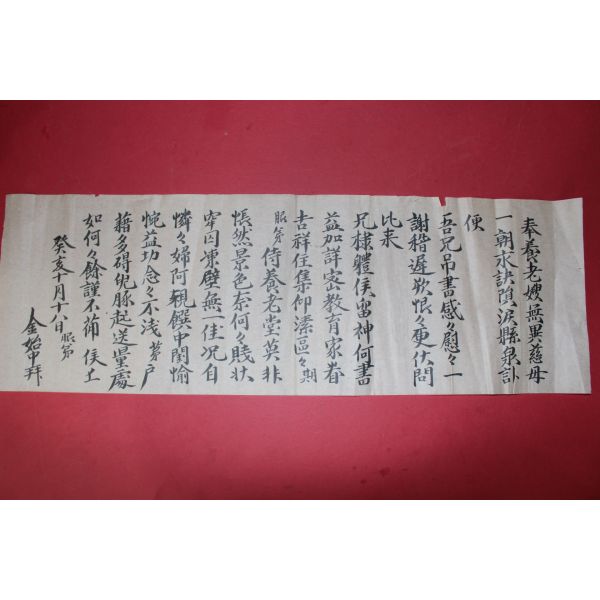 奉養老嫂無異慈母
一朝永訣隕淚縣泉訃
便
吾兄吊書感々慰々一
謝稽遲歎恨々更伏問
比來
兄棣體侯留神何書
益加詳密教育家眷
吉祥住集仰溸區々期
服弟侍養老堂莫非
悵然景色奈何々賤狀
窄囚凍壁無一佳况自
憐々婦阿親饌中閨愉
惋益功念々不浅
藉多碍兒豚起送量處
如何々餘謹不備 侯上
癸亥十月十八日 服弟
金始中拜